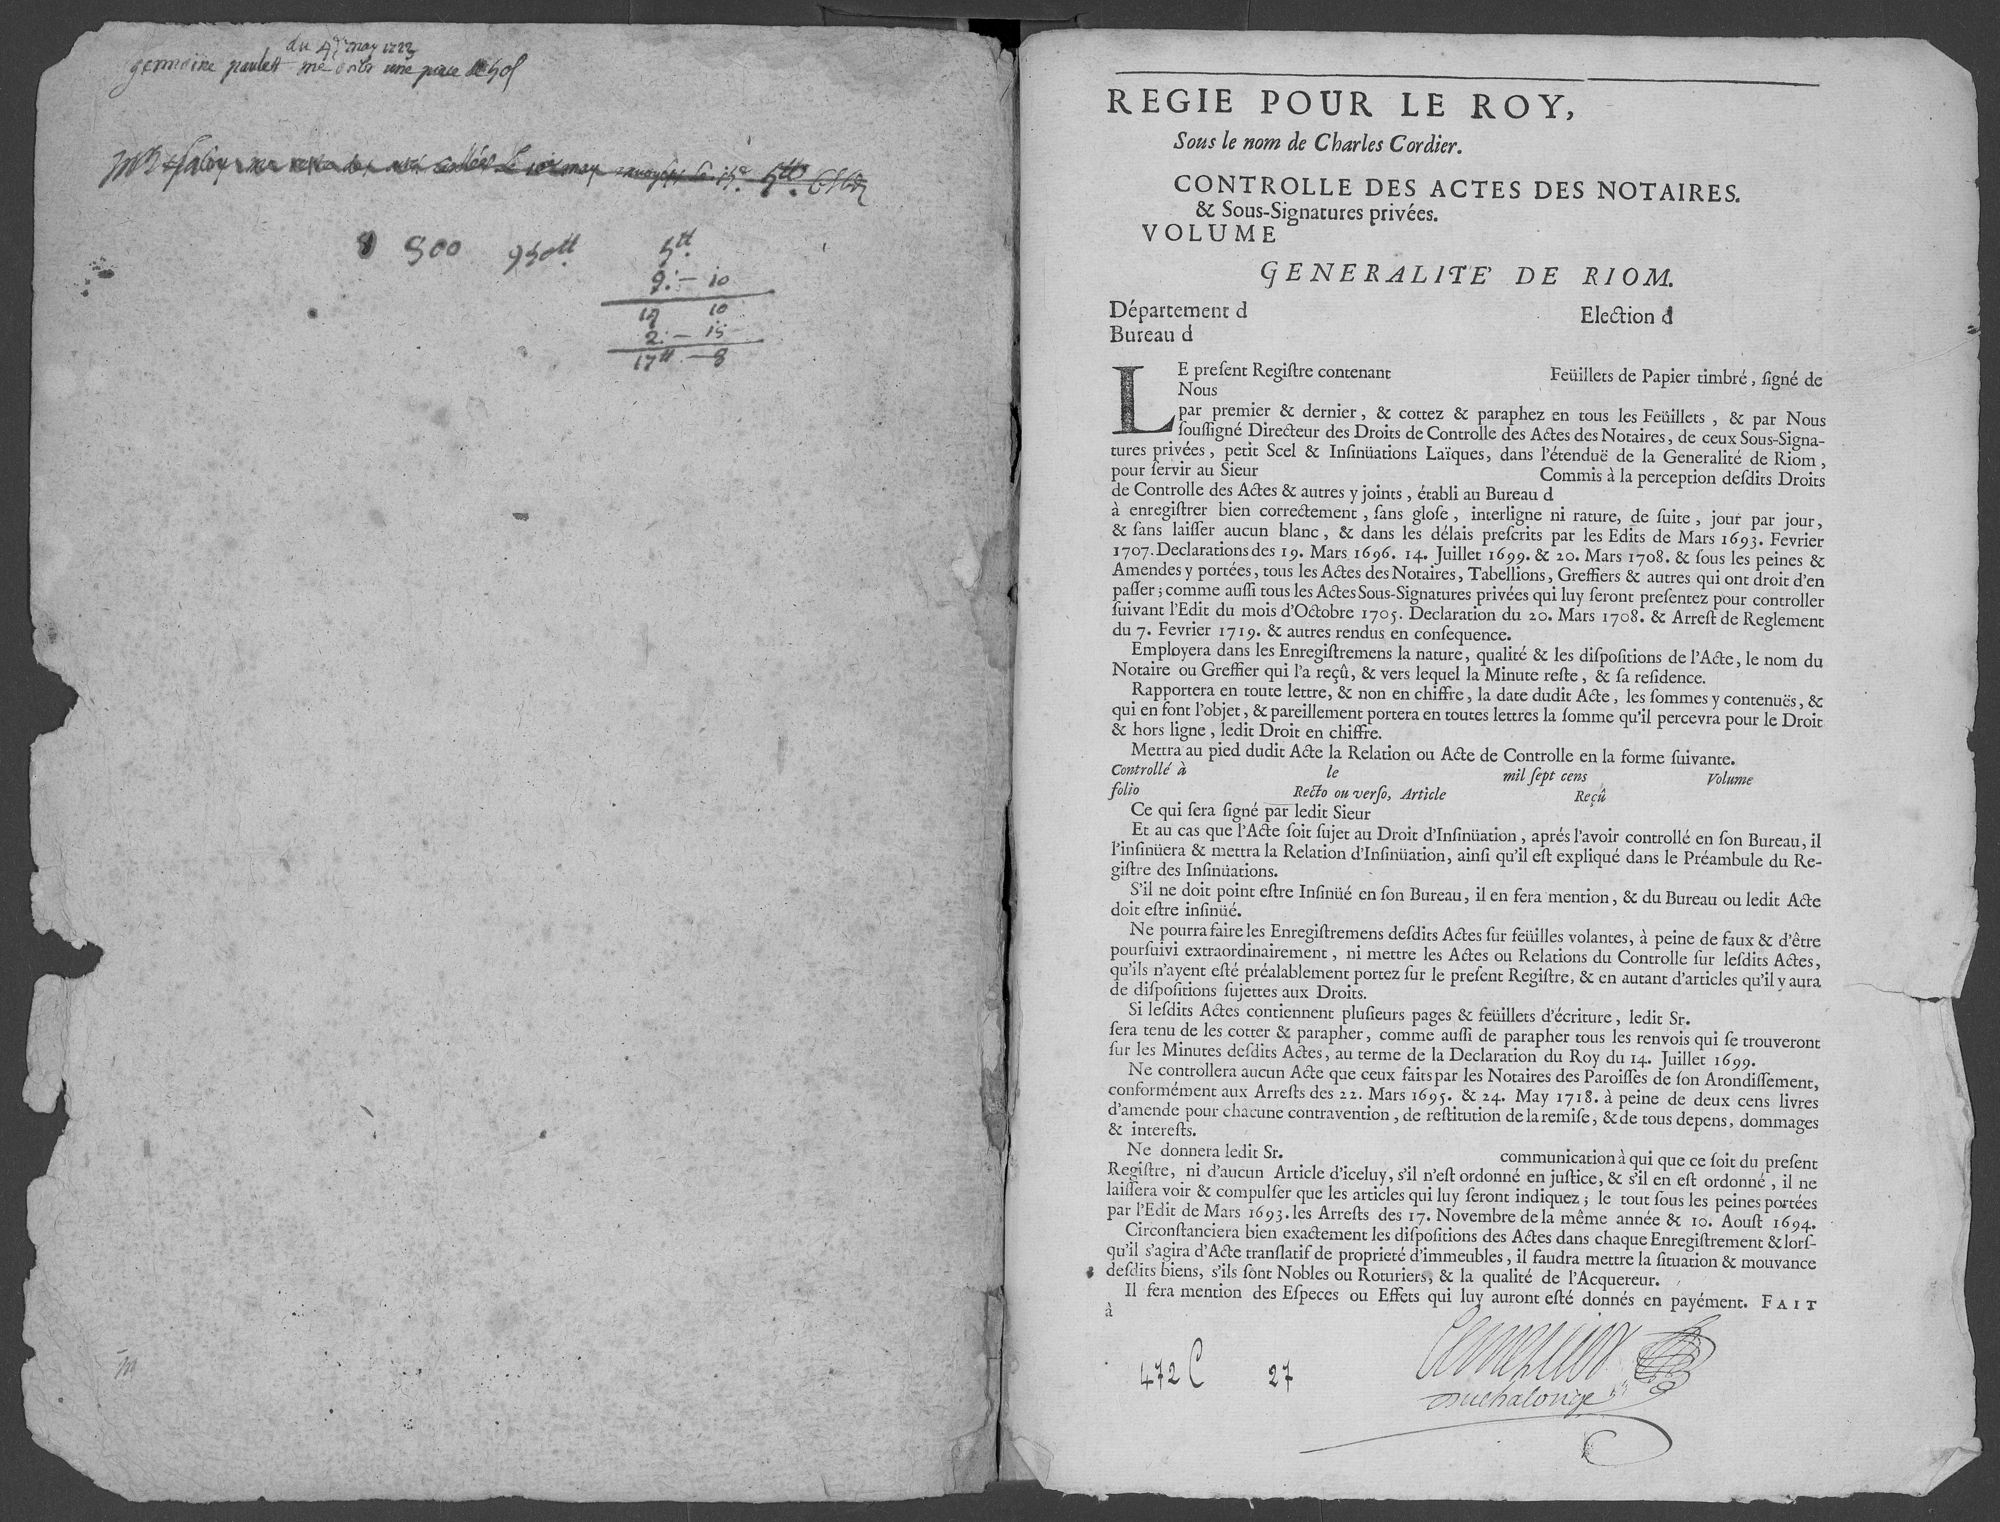 du 4e may 1722
germaine paulet me doibt une piece de 50s
8 900 950tt
5tt
9:-10
10
2:-15
17tt-8
REGIE POUR LE ROY,
Sous le nom de Charles Cordier.
CONTROLLE DES ACTES DES NOTAIRES.
& Sous-Signatures privées.
VOLUME
GENERALITE' DE RIOM.
Département d Election d
Bureau d
LE preſent Regiſtre contenant Feüillets de Papier timbré, ſigné de
Nous
par premier & dernier, & cottez & paraphez en tous les Feüillets, & par Nous
ſouſſigné Directeur des Droits de Controlle des Actes des Notaires, de ceux Sous-Signa-
tures privées, petit Scel & Inſinüations Laïques, dans l'étenduë de la Generalité de Riom,
pour ſervir au Sieur Commis à la perception deſdits Droits
de Controlle des Actes & autres y joints, établi au Bureau d
à enregiſtrer bien correctement, ſans gloſe, interligne ni rature, de ſuite, jour par jour,
& ſans laiſſer aucun blanc, & dans les délais preſcrits par les Edits de Mars 1693. Fevrier
1707. Declarations des 19. Mars 1696. 14. Juillet 1699. & 20. Mars 1708. & ſous les peines &
Amendes y portées, tous les Actes des Notaires, Tabellions, Greffiers & autres qui ont droit d'en
paſſer; comme auſſi tous les Actes Sous-Signatures privées qui luy ſeront preſentez pour controller
ſuivant l'Edit du mois d'Octobre 1705. Declaration du 20. Mars 1708. & Arreſt de Reglement
du 7. Fevrier 1719. & autres rendus en conſequence.
Employera dans les Enregiſtremens la nature, qualité & les diſpoſitions de l'Acte, le nom du
Notaire ou Greffier qui l'a reçû, & vers lequel la Minute reſte, & ſa reſidence.
Rapportera en toute lettre, & non en chiffre, la date dudit Acte, les ſommes y contenuës, &
qui en font l'objet, & pareillement portera en toutes lettres la ſomme qu'il percevra pour le Droit
& hors ligne, ledit Droit en chiffre.
Mettra au pied dudit Acte la Relation ou Acte de Controlle en la forme ſuivante.
Controllé à le mil ſept cens Volume
folio Recto ou verſo, Article Reçû
Ce qui ſera ſigné par ledit Sieur
Et au cas que l'Acte ſoit ſujet au Droit d'Inſinüation, aprés l'avoir controllé en ſon Bureau, il
l'inſinüera & mettra la Relation d'Inſinüation, ainſi qu'il eſt expliqué dans le Préambule du Re-
giſtre des Inſinüations.
S'il ne doit point eſtre Inſinüé en ſon Bureau, il en fera mention, & du Bureau ou ledit Acte
doit eſtre inſinüé.
Ne pourra faire les Enregiſtremens deſdits Actes ſur feüilles volantes, à peine de faux & d'être
pourſuivi extraordinairement, ni mettre les Actes ou Relations du Controlle ſur leſdits Actes,
qu'ils n'ayent eſté préalablement portez ſur le preſent Regiſtre, & en autant d'articles qu'il y aura
de diſpoſitions ſujettes aux Droits.
Si leſdits Actes contiennent pluſieurs pages & feüillets d'écriture, ledit Sr.
ſera tenu de les cotter & parapher, comme auſſi de parapher tous les renvois qui ſe trouveront
ſur les Minutes deſdits Actes, au terme de la Declaration du Roy du 14. Juillet 1699.
Ne controllera aucun Acte que ceux faits par les Notaires des Paroiſſes de ſon Arondiſſement,
conformément aux Arreſts des 22. Mars 1695. & 24. May 1718. à peine de deux cens livres
d'amende pour chacune contravention, de reſtitution de la remiſe, & de tous depens, dommages
& intereſts.
Ne donnera ledit Sr. communication à qui que ce ſoit du preſent
Regiſtre, ni d'aucun Article d'iceluy, s'il n'eſt ordonné en juſtice, & s'il en eſt ordonné, il ne
laiſſera voir & compulſer que les articles qui luy ſeront indiquez; le tout ſous les peines portées
par l'Edit de Mars 1693. les Arreſts des 17. Novembre de la même année & 10. Aouſt 1694.
Circonſtanciera bien exactement les diſpoſitions des Actes dans chaque Enregiſtrement & lorſ-
qu'il s'agira d'Acte tranſlatif de proprieté d'immeubles, il faudra mettre la ſituation & mouvance
deſdits biens, s'ils ſont Nobles ou Roturiers, & la qualité de l'Acquereur.
Il fera mention des Eſpeces ou Effets qui luy auront eſté donnés en payément. FAIT
à
472 C 27